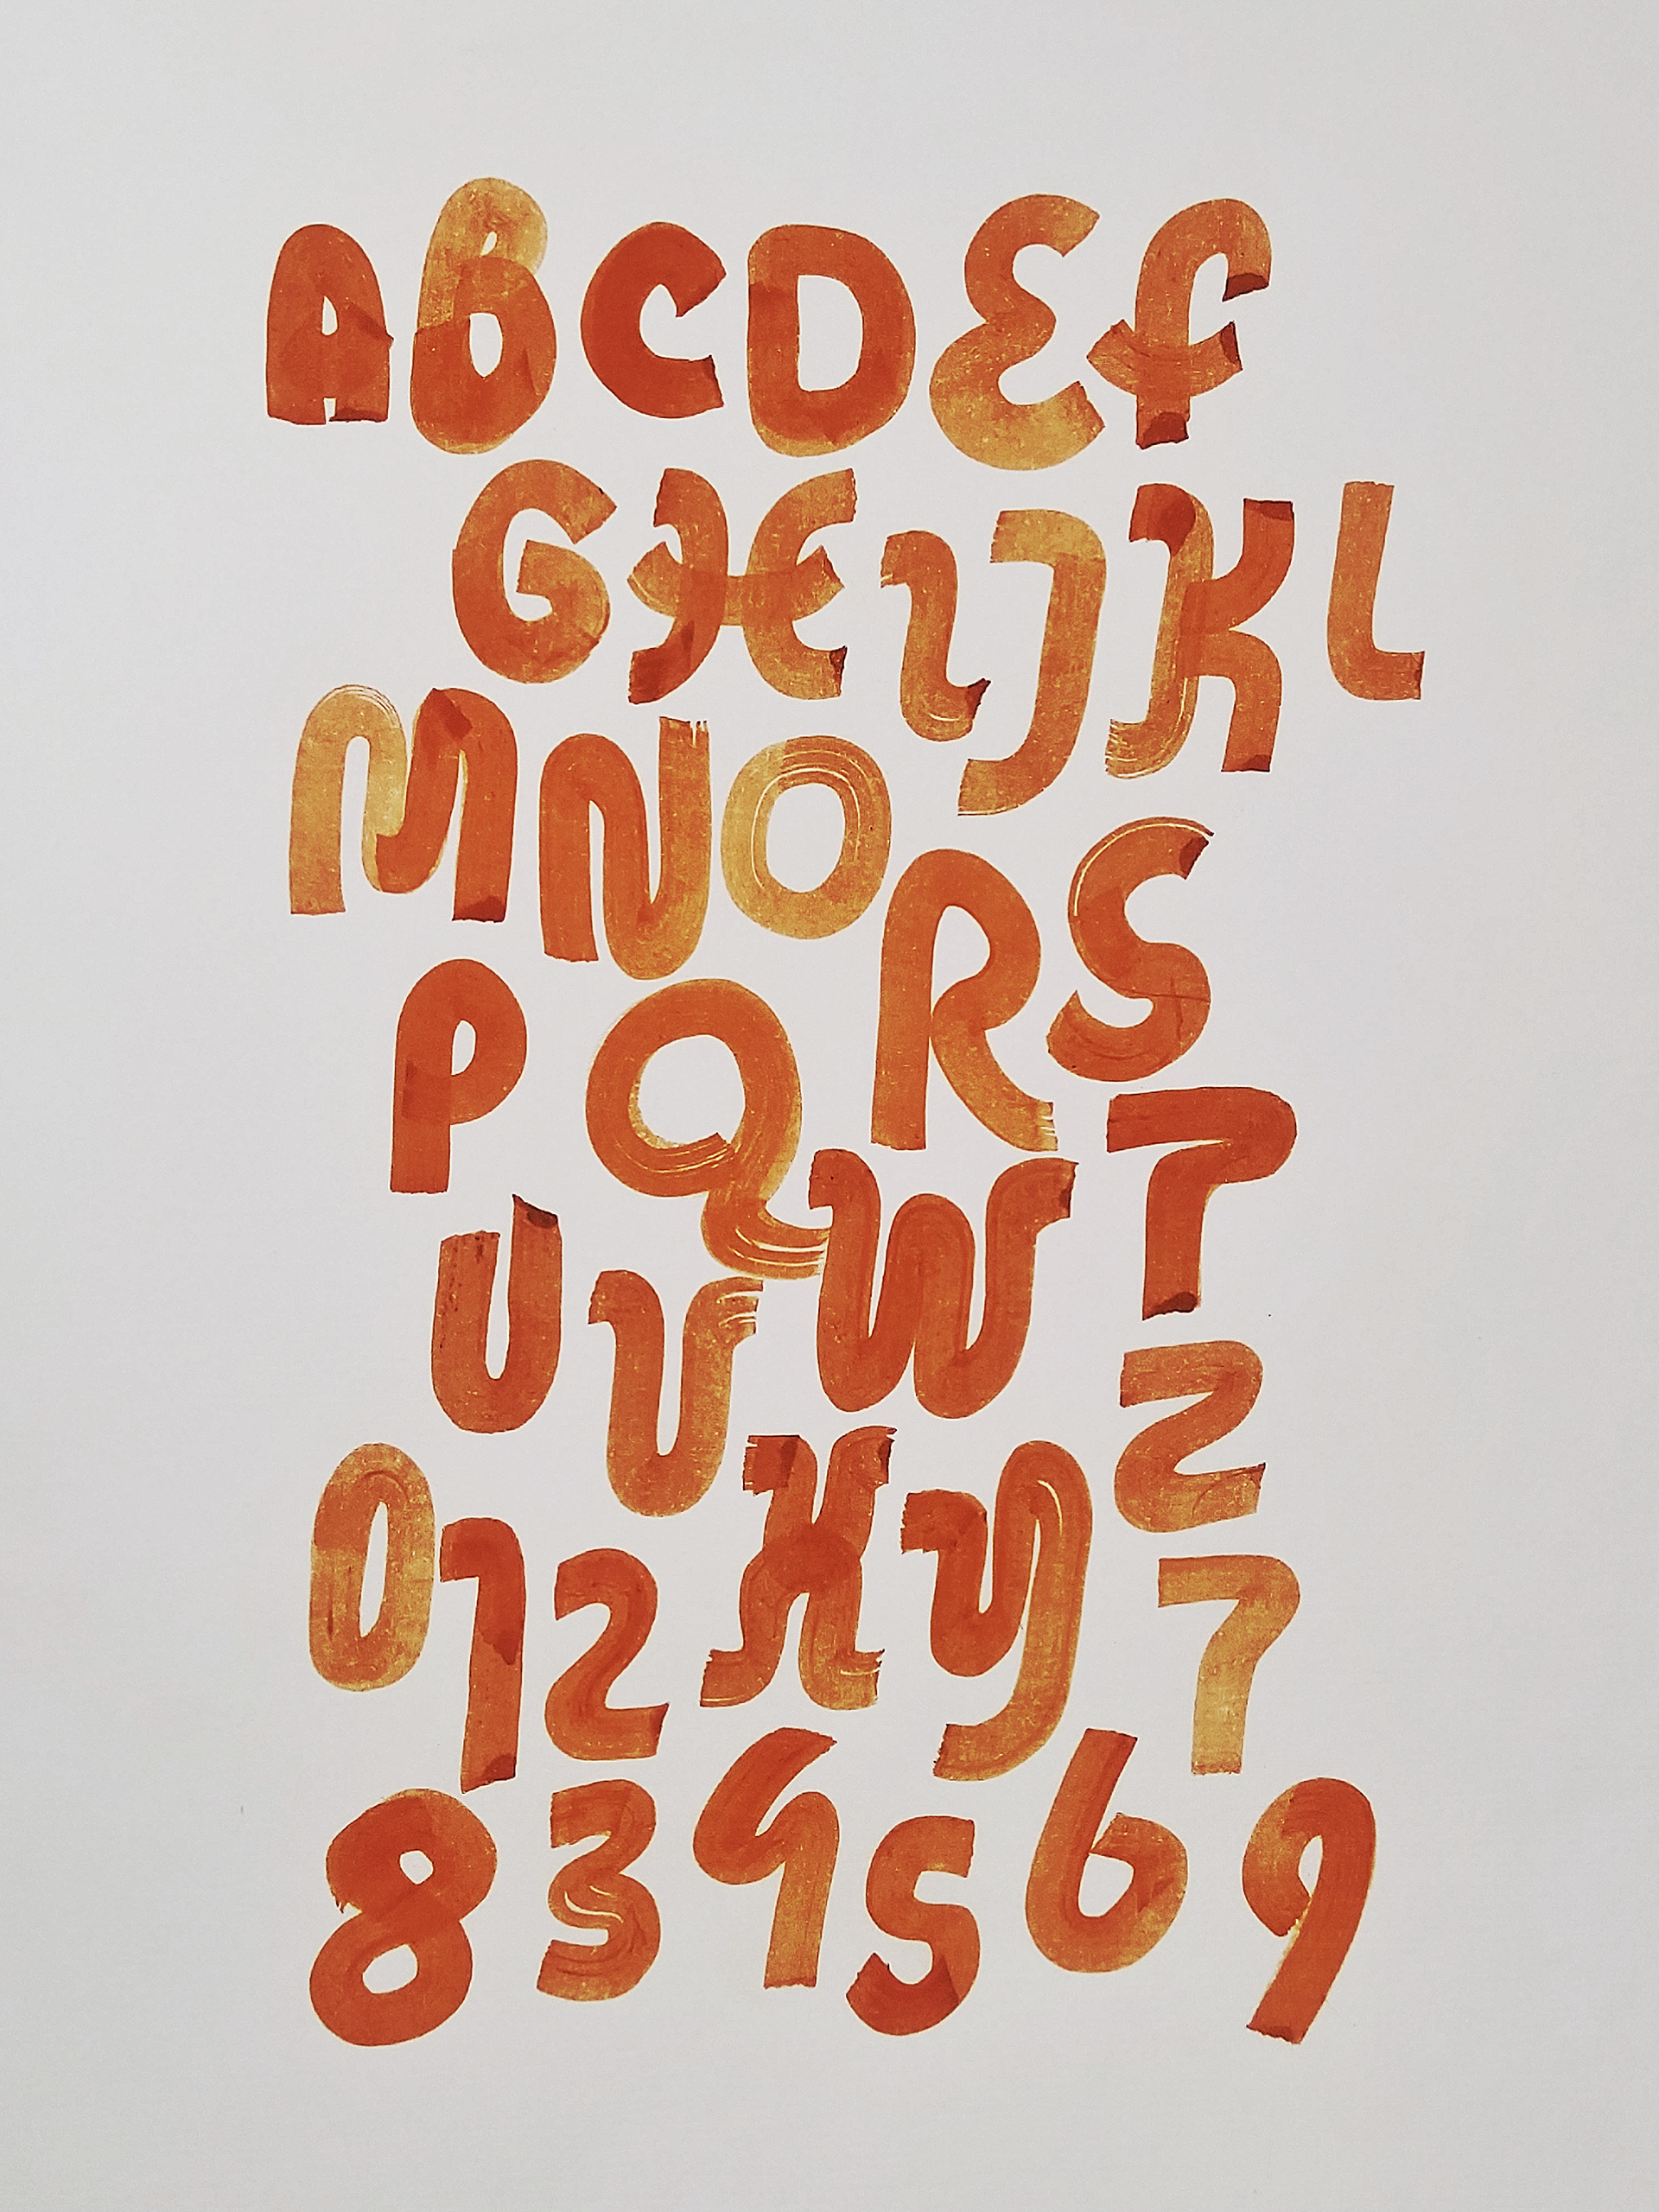 ABCDEF
GHIJKL
MNO
PQRS
UVWT
XYZ
012
7
834569